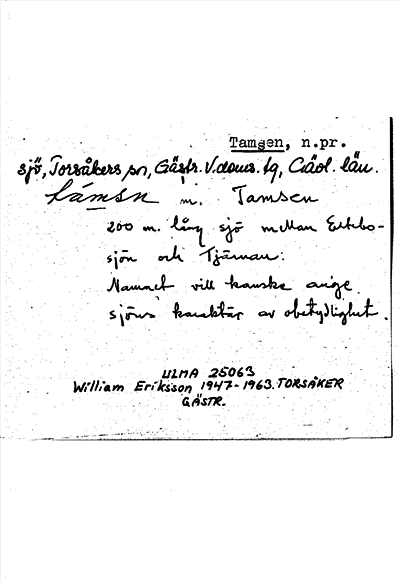 Tamsen, n.pr.
sjö, Torsåkers sn, Gästr. V.doms. tg, Gävl. län.
támsn m. Tamsen
200 m. lång sjö mellan
sjön och Tjärnan.
Namnet vill kanske ange
sjöns karaktär av obetydlighet.
ULMA 25063
William Eriksson 1947-1963. TORSÅKER
GÄSTR.